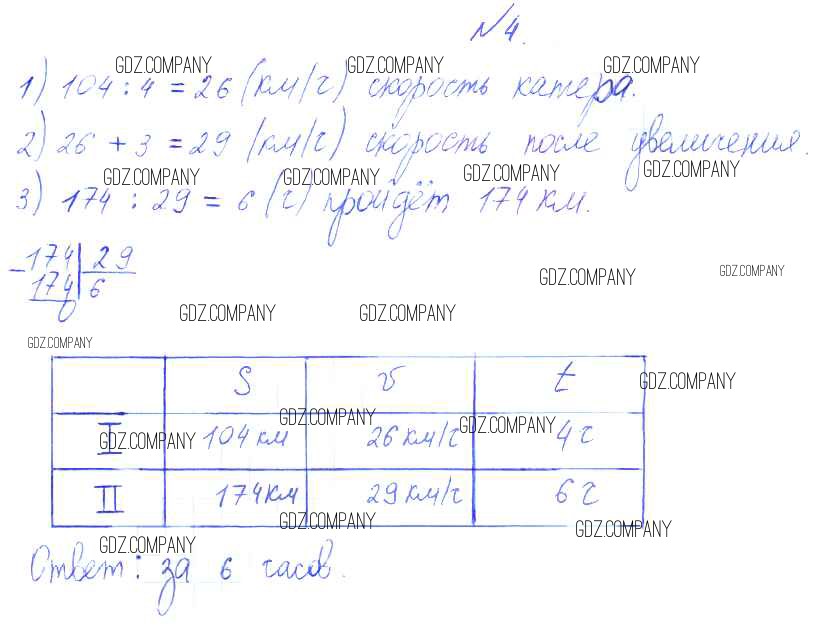 №4.
GDZ.COMPANY GDZ.COMPANY GDZ.COMPANY
1) 104 : 4 = 26 (км/ч) скорость катера.
2) 26 + 3 = 29 (км/ч) скорость после увеличения.
GDZ.COMPANY GDZ.COMPANY GDZ.COMPANY GDZ.COMPANY
3) 174 : 29 = 6 (ч) пройдёт 174 км.
– 174 | 29
174 | 6
0
GDZ.COMPANY GDZ.COMPANY
GDZ.COMPANY GDZ.COMPANY
GDZ.COMPANY
S v t
GDZ.COMPANY
GDZ.COMPANY GDZ.COMPANY GDZ.COMPANY
I 104 км 26 км/ч 4 ч
II 174 км 29 км/ч 6 ч
GDZ.COMPANY GDZ.COMPANY
GDZ.COMPANY
Ответ: за 6 часов.